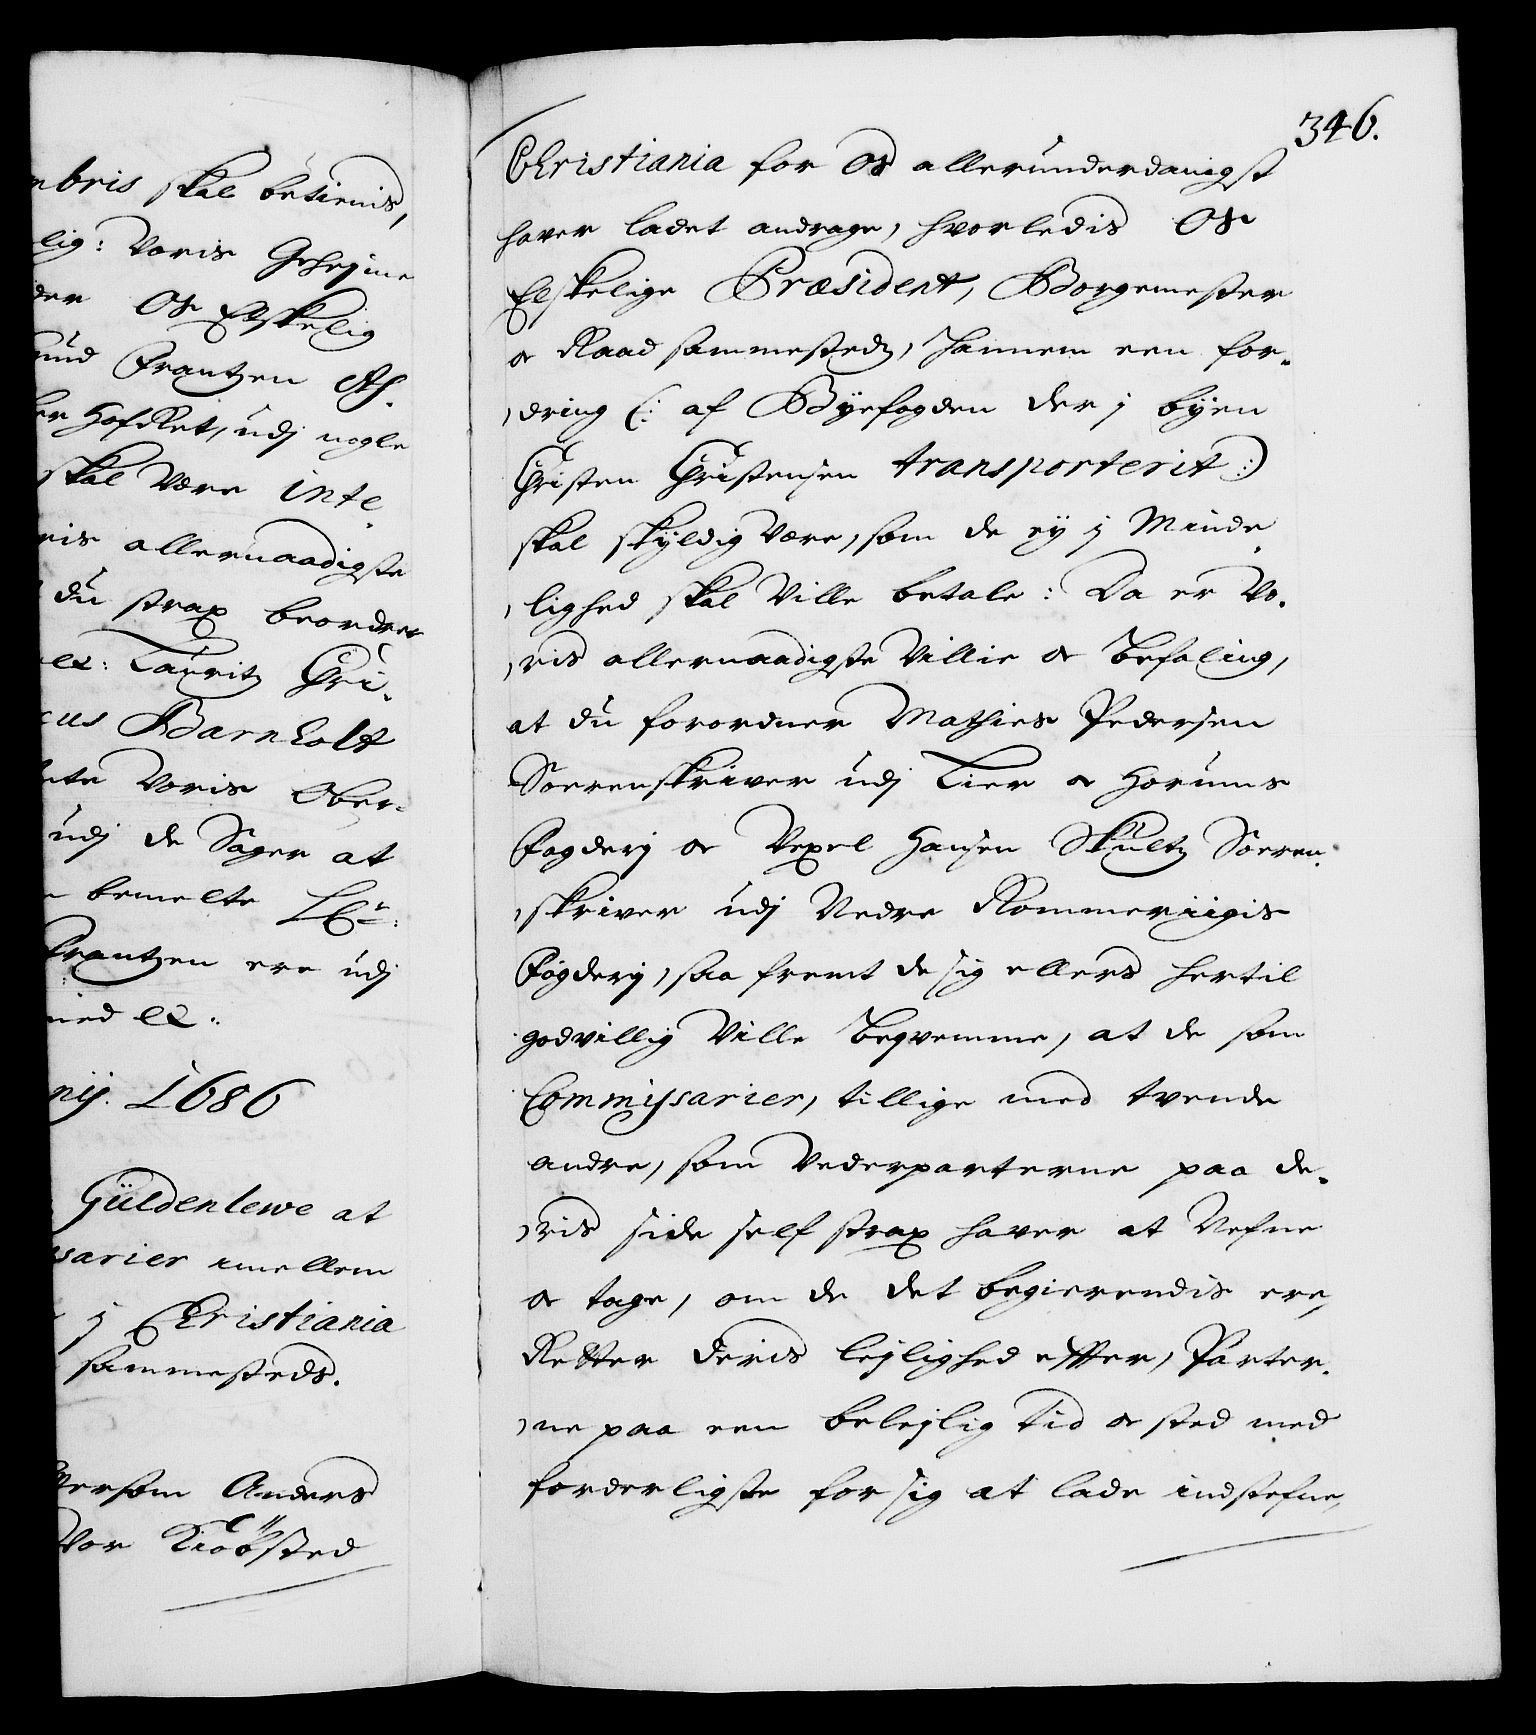 mbris skal betienis,
lig: Voris Gehejme
der Os Elskelig
mund Frantzen Ass.
ber Hofret, udj nogle
skal være inte
ris allernaadigste
du strax beordrer
et: Lauritz Chri-
cus Barnholt
Voris Ober-
udj de Sager at
bemelte
Frantzen ere udj
med etc:
nij. 1686
Güldenlewe at
sarier imellem
j Christiania
sammesteds.
tersom Anders
vor Kiöbsted
346.
Christiania for Os allerunderdanigst
haver ladet andrage, hvorledis Os
Elskelige Præsident, Borgemester
oc Raad sammestedz, hannem een for-
dring (: af Byefogden der j byen
Christen Christensen transporterit :)
skal skyldig være, som de ey j Minde-
lighed skal ville betale: Da er Vo-
ris allernaadigste Villie oc Befaling,
at du forordner Mathies Pedersen
Sorenskriver udj Lier oc Horums
Fogderj oc Vexel Hansen Skultz Soren-
skriver udj Nedre Rommeriigis
Fogderj, saa fremt de sig ellers hertil
godvillig ville beqvemme, at de som
Commissarier, tillige med tvende
andre, som Vederparterne paa de-
ris side self strax haver at Nefne
oc tage, om de det begierendis ere,
Retter deris lejlighed effter, Parter-
ne paa een belejlig tid oc sted med
forderligste for sig at lade indstefne,